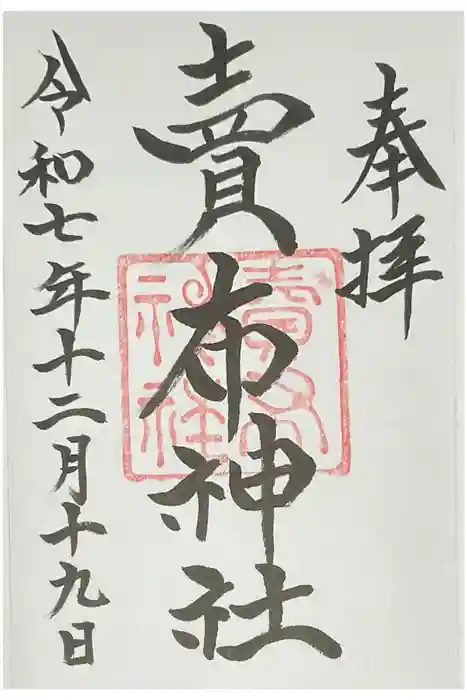 奉拝
賣布神社
令和七年十二月十九日